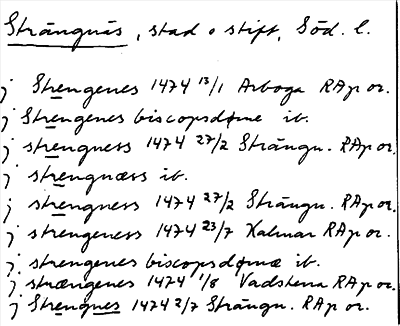 Strängnäs, stad o stift, Söd. l.
j Strengenes 1474 13/1 Arboga RAp or.
j Strengenes biscopsdøme ib.
j strengness 1474 27/2 Strängn. RAp or.
j strengnæss ib.
j strengness 1474 27/2 Strängn. RAp or.
j strengeness 1474 23/7 Kalmar RAp or.
j strengenes biscopsdømæ ib.
j strængenes 1474 1/8 Vadstena RAp or.
j Strengnes 1474 2/7 Strängn. RAp or.